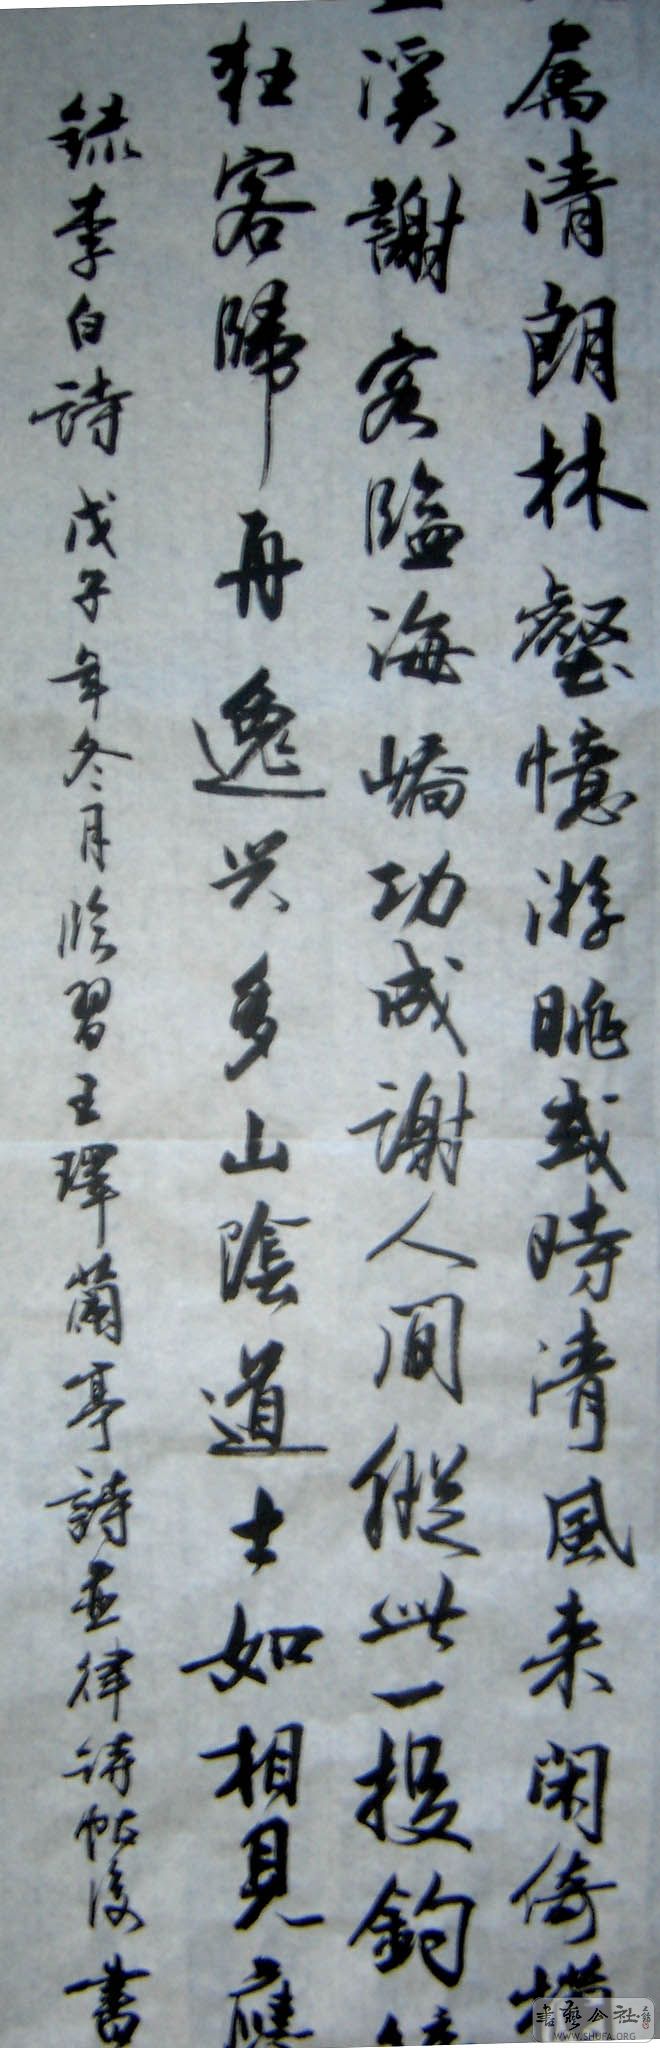 属清朗林壑憶游眺或时清風来闲倚
溪謝客臨海嶠功成謝人间從此一投釣
狂客歸舟逸兴多山陰道士如相見應
錄李白詩戊子年冬月临習王鐸蘭亭詩並律诗帖後書
書藝公社
WWW.SHUFA.ORG